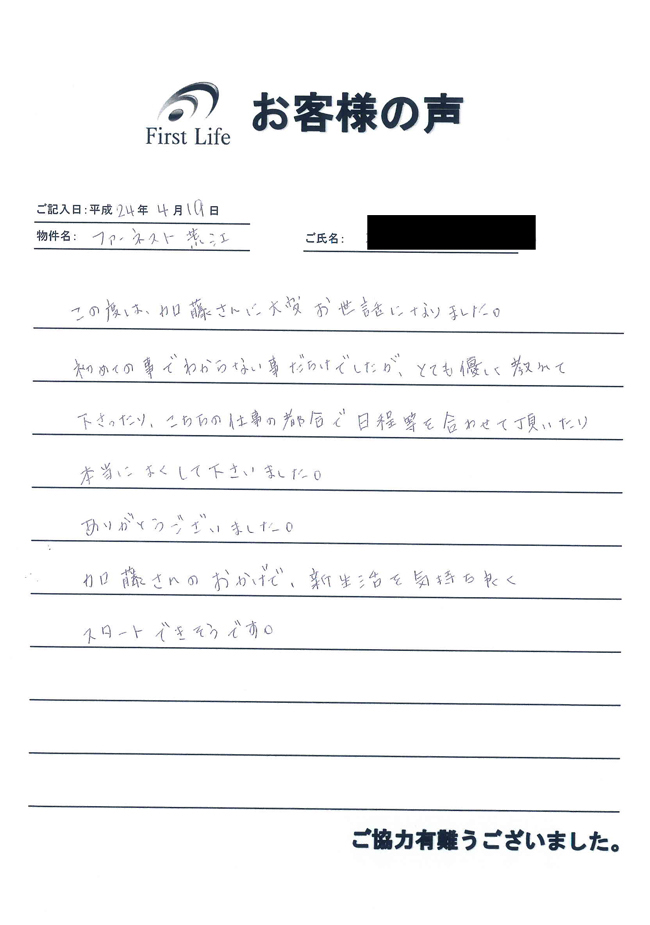 First Life
お客様の声
ご記入日:平成24年4月19日
物件名: ファーネスト荒江
ご氏名:
この度は、加藤さんに大変お世話になりました。
初めての事でわからない事だらけでしたが、とても優しく教えて
下さったり、こちらの仕事の都合で日程等を合わせて頂いたり
本当によくして下さいました。
ありがとうございました。
加藤さんのおかげで、新生活を気持ち良く
スタートできそうです。
ご協力有難うございました。